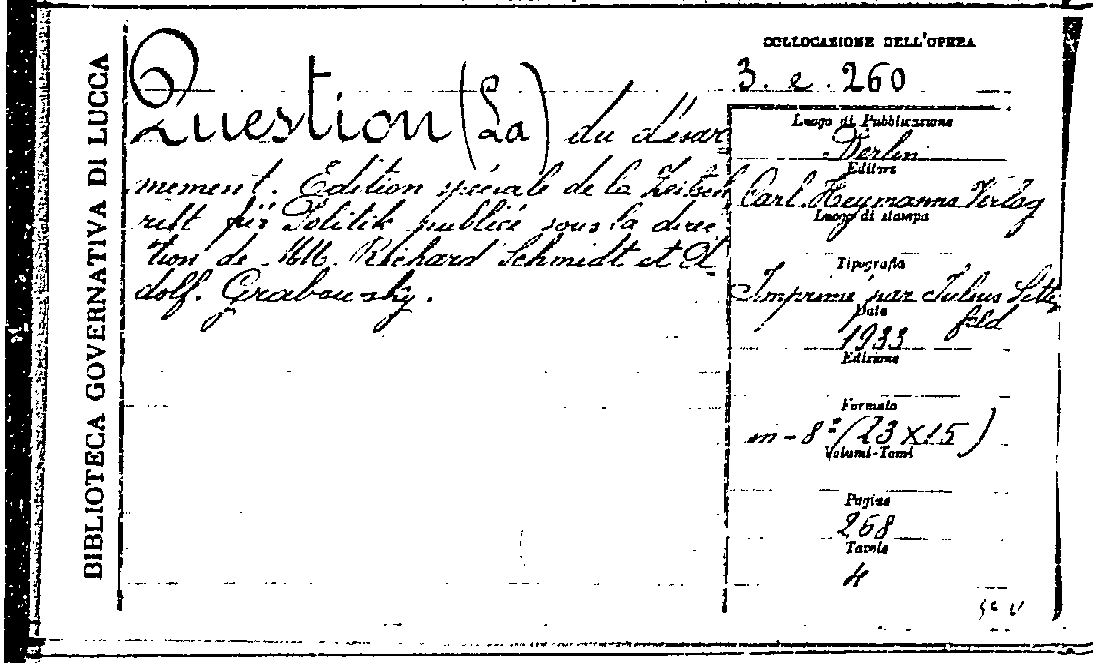 BIBLIOTECA GOVERNATIVA DI LUCCA
Question (La) du désar
mement. Edition spéciale de la Zeitsch
rift für Politik publiée sous la direc
tion de MM. Richard Schmidt et A
dolf. Grabowsky.
COLLOCAZIONE DELL'OPERA
3. e. 260
Luogo di Pubblicazione
Berlin
Editore
Carl Heymanns Verlag
Luogo di stampa
Tipografia
Imprimé par Julius Sitten
feld
Data
1933
Edizione
Formato
in-8° (23 x 15)
Volumi-Tomi
Pagine
268
Tavole
4